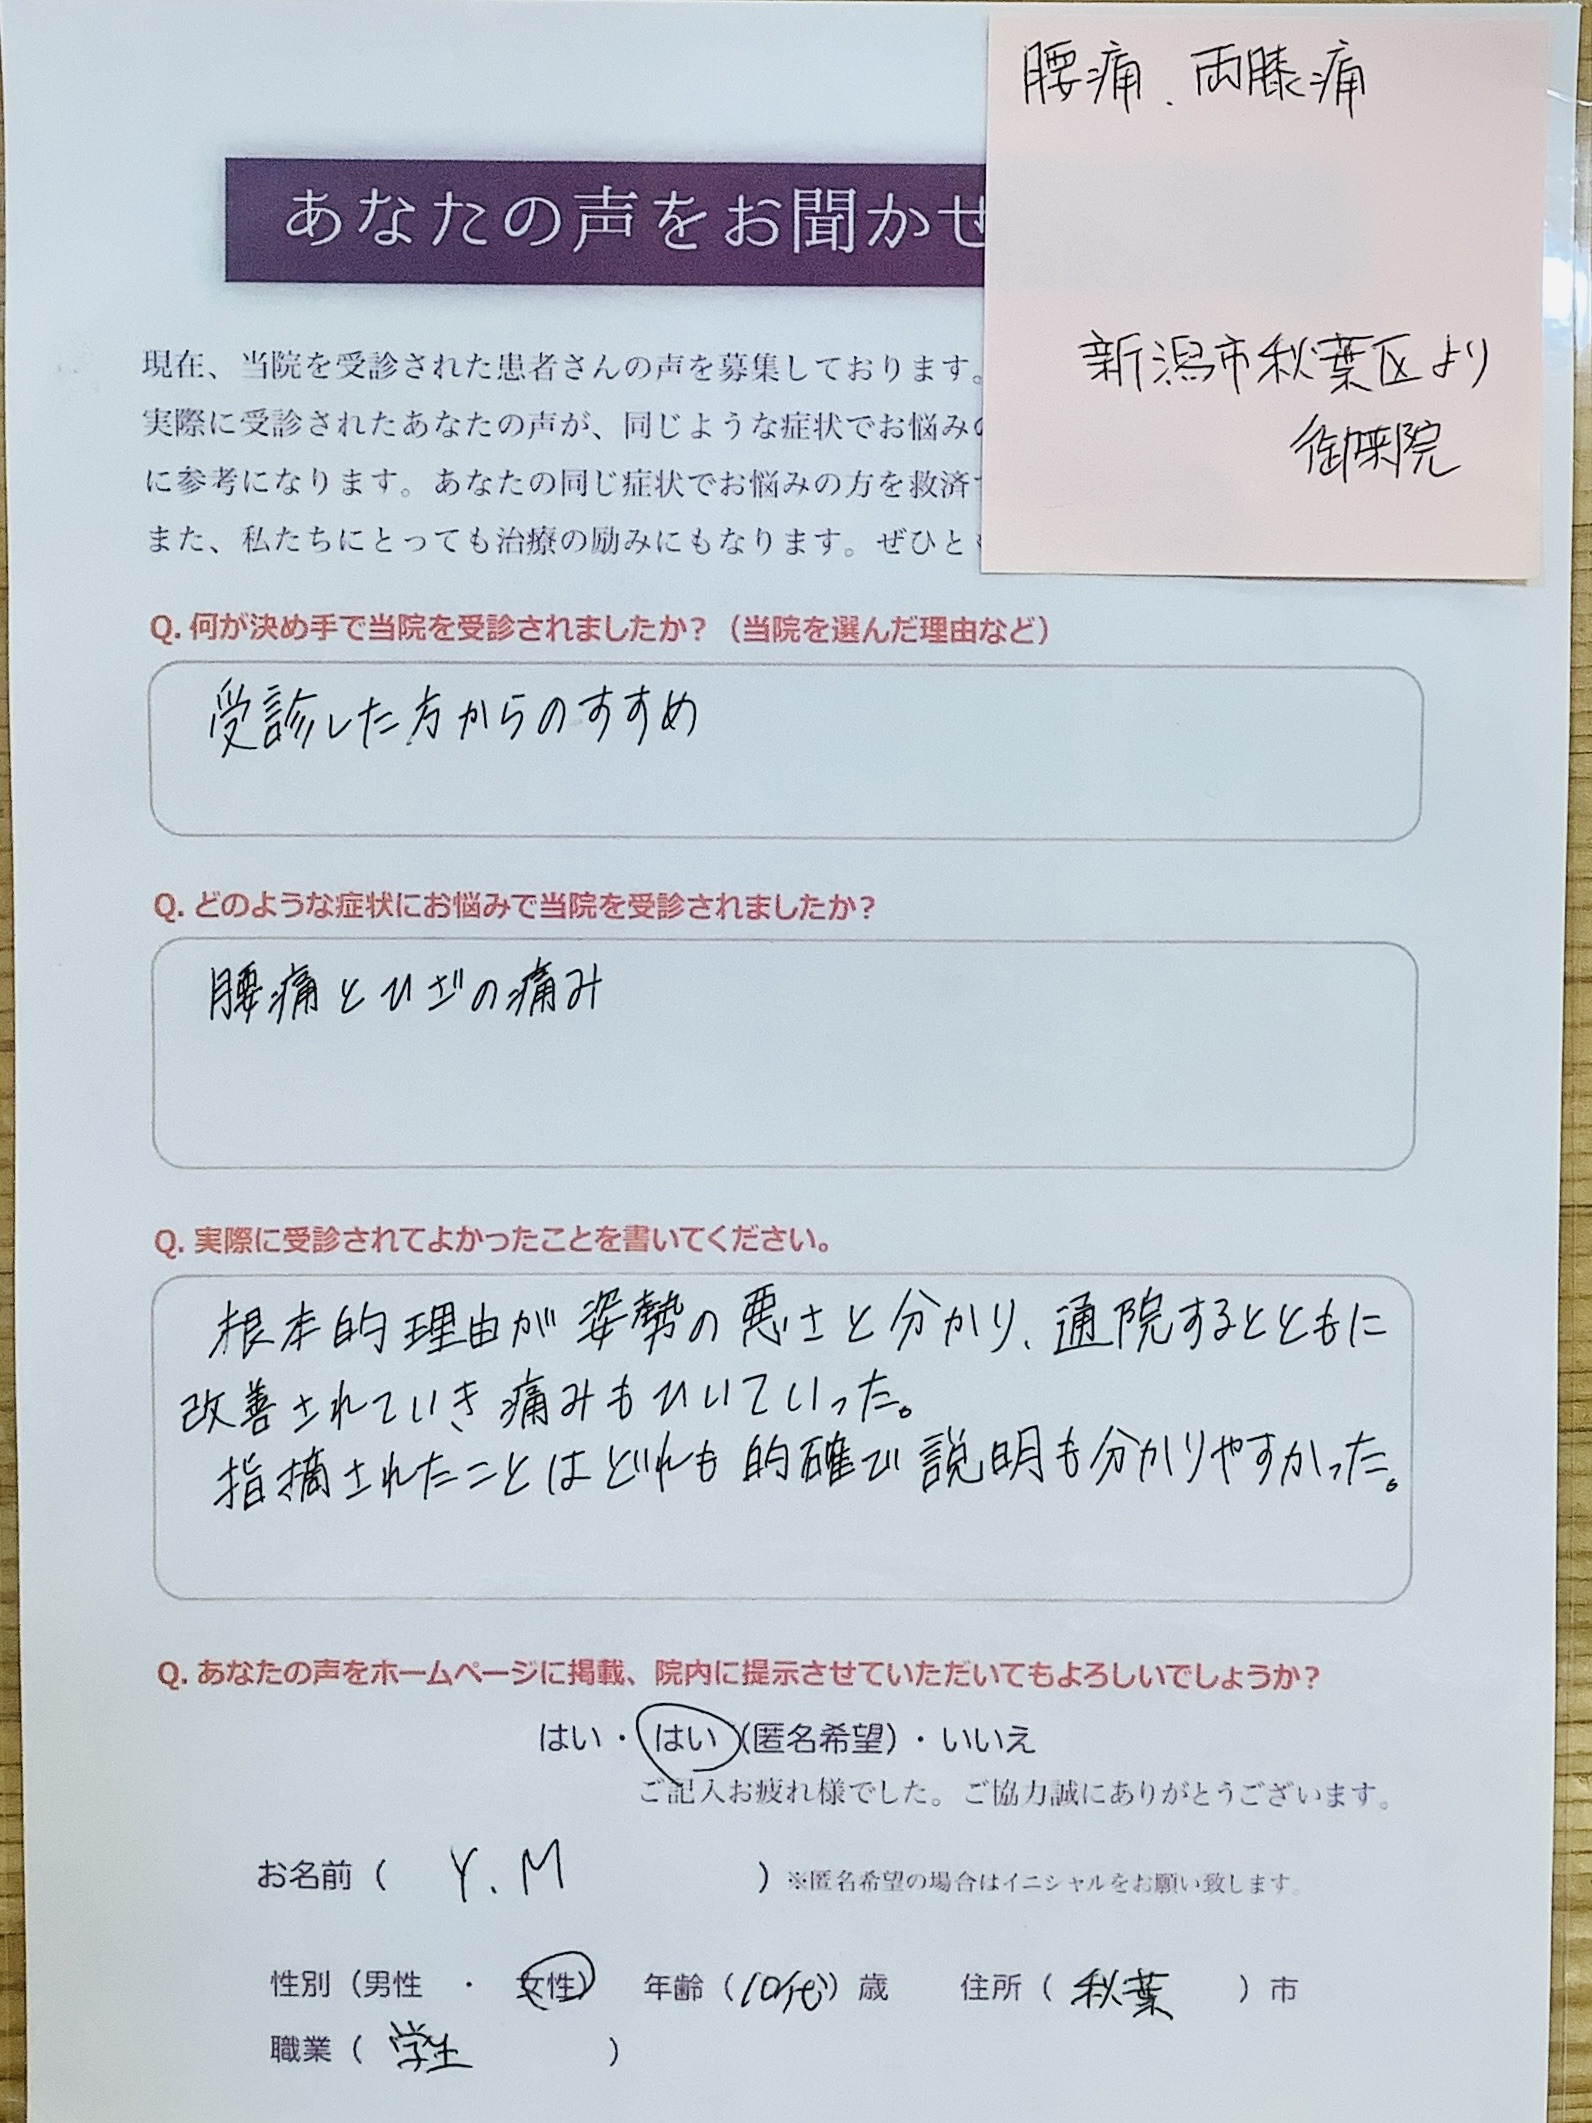 腰痛、両膝痛
新潟市秋葉区より
御来院
あなたの声をお聞かせ
現在、当院を受診された患者さんの声を募集しております。
実際に受診されたあなたの声が、同じような症状でお悩みの
に参考になります。あなたの同じ症状でお悩みの方を救済
また、私たちにとっても治療の励みにもなります。ぜひと
Q. 何が決め手で当院を受診されましたか?（当院を選んだ理由など）
受診した方からのすすめ
Q. どのような症状にお悩みで当院を受診されましたか?
腰痛とひざの痛み
Q. 実際に受診されてよかったことを書いてください。
根本的理由が姿勢の悪さと分かり、通院するとともに
改善されていき痛みもひいていった。
指摘されたことはどれも的確で説明も分かりやすかった。
Q. あなたの声をホームページに掲載、院内に提示させていただいてもよろしいでしょうか?
はい・はい(匿名希望)・いいえ
ご記入お疲れ様でした。ご協力誠にありがとうございます。
お名前（ Y.M ）※匿名希望の場合はイニシャルをお願い致します。
性別（男性 ・ 女性） 年齢（10代）歳 住所（ 秋葉 ）市
職業（ 学生 ）